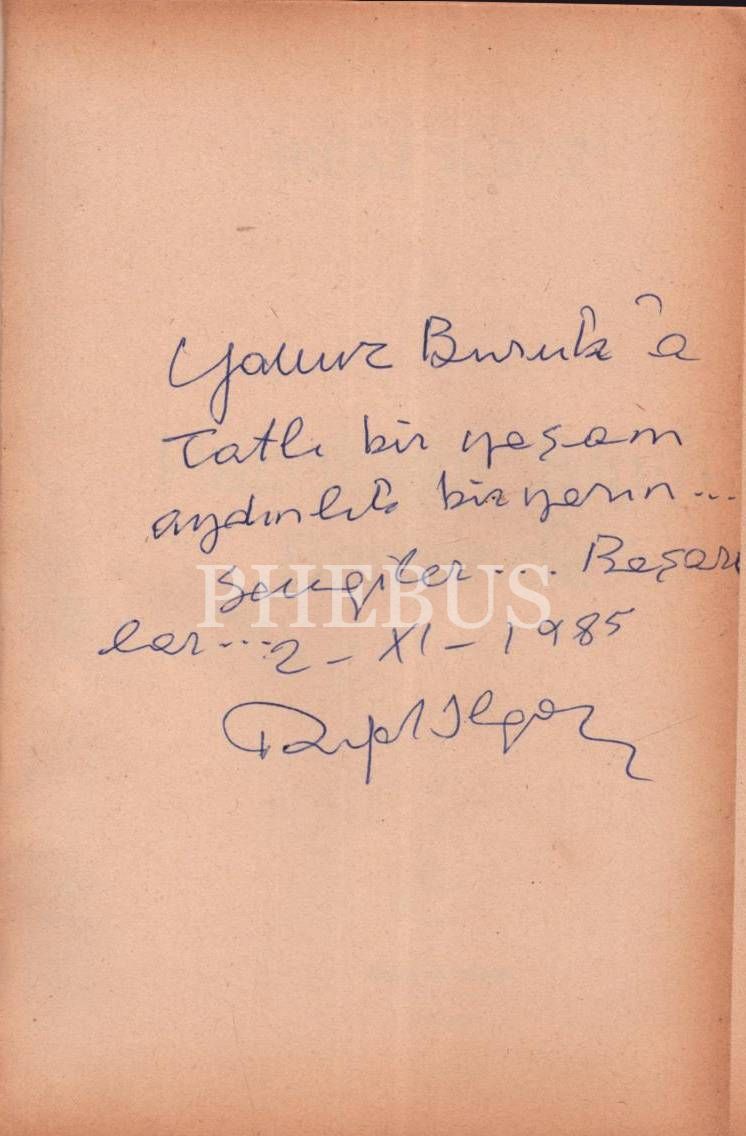 Yavuz Buruk'a
Tatlı bir yaşam
aydınlık bir yarın...
Sevgiler... Başarı
lar... 2-XI-1985
Rıfat Ilgaz
PHEBUS